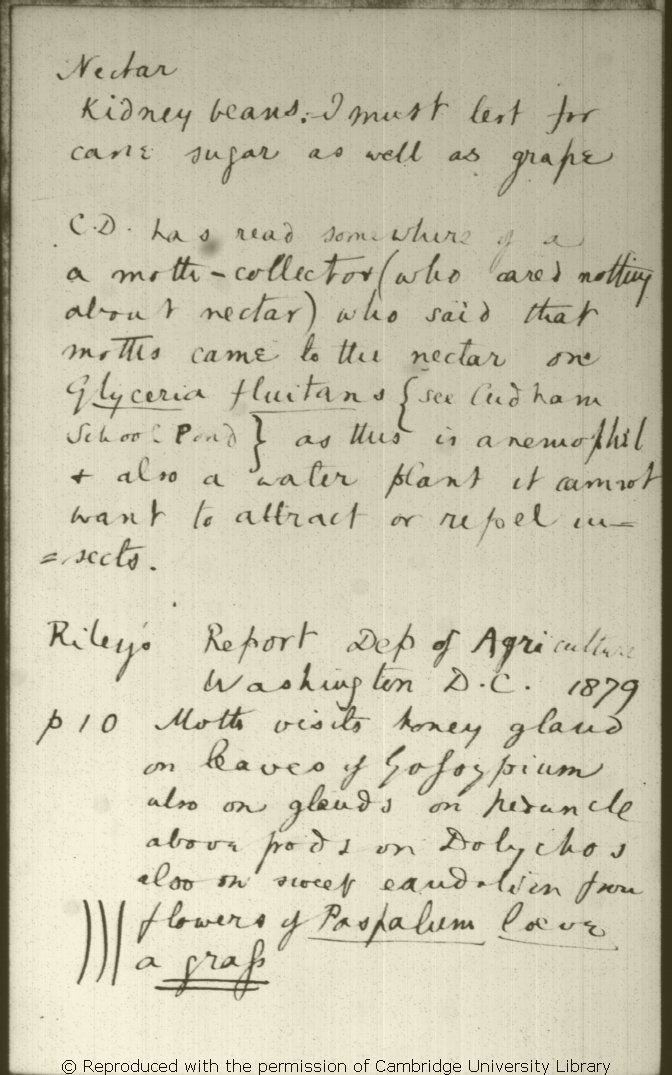 Nectar
Kidney beans. I must test for
cane sugar as well as grape
C.D. has read somewhere of a
a moth-collector (who cared nothing
about nectar) who said that
moths came to the nectar on
Glyceria fluitans {see Cudham
School Pond} as this is anemophil
+ also a water plant it cannot
want to attract or repel in=
=sects.
Riley's Report Dep of Agriculture
Washington D.C. 1879
p 10 Moth visits honey gland
on leaves of Gossypium
also on glands on peduncle
above pods on Dolychos
also on sweet exudation from
flowers of Paspalum lœve
a grass
© Reproduced with the permission of Cambridge University Library